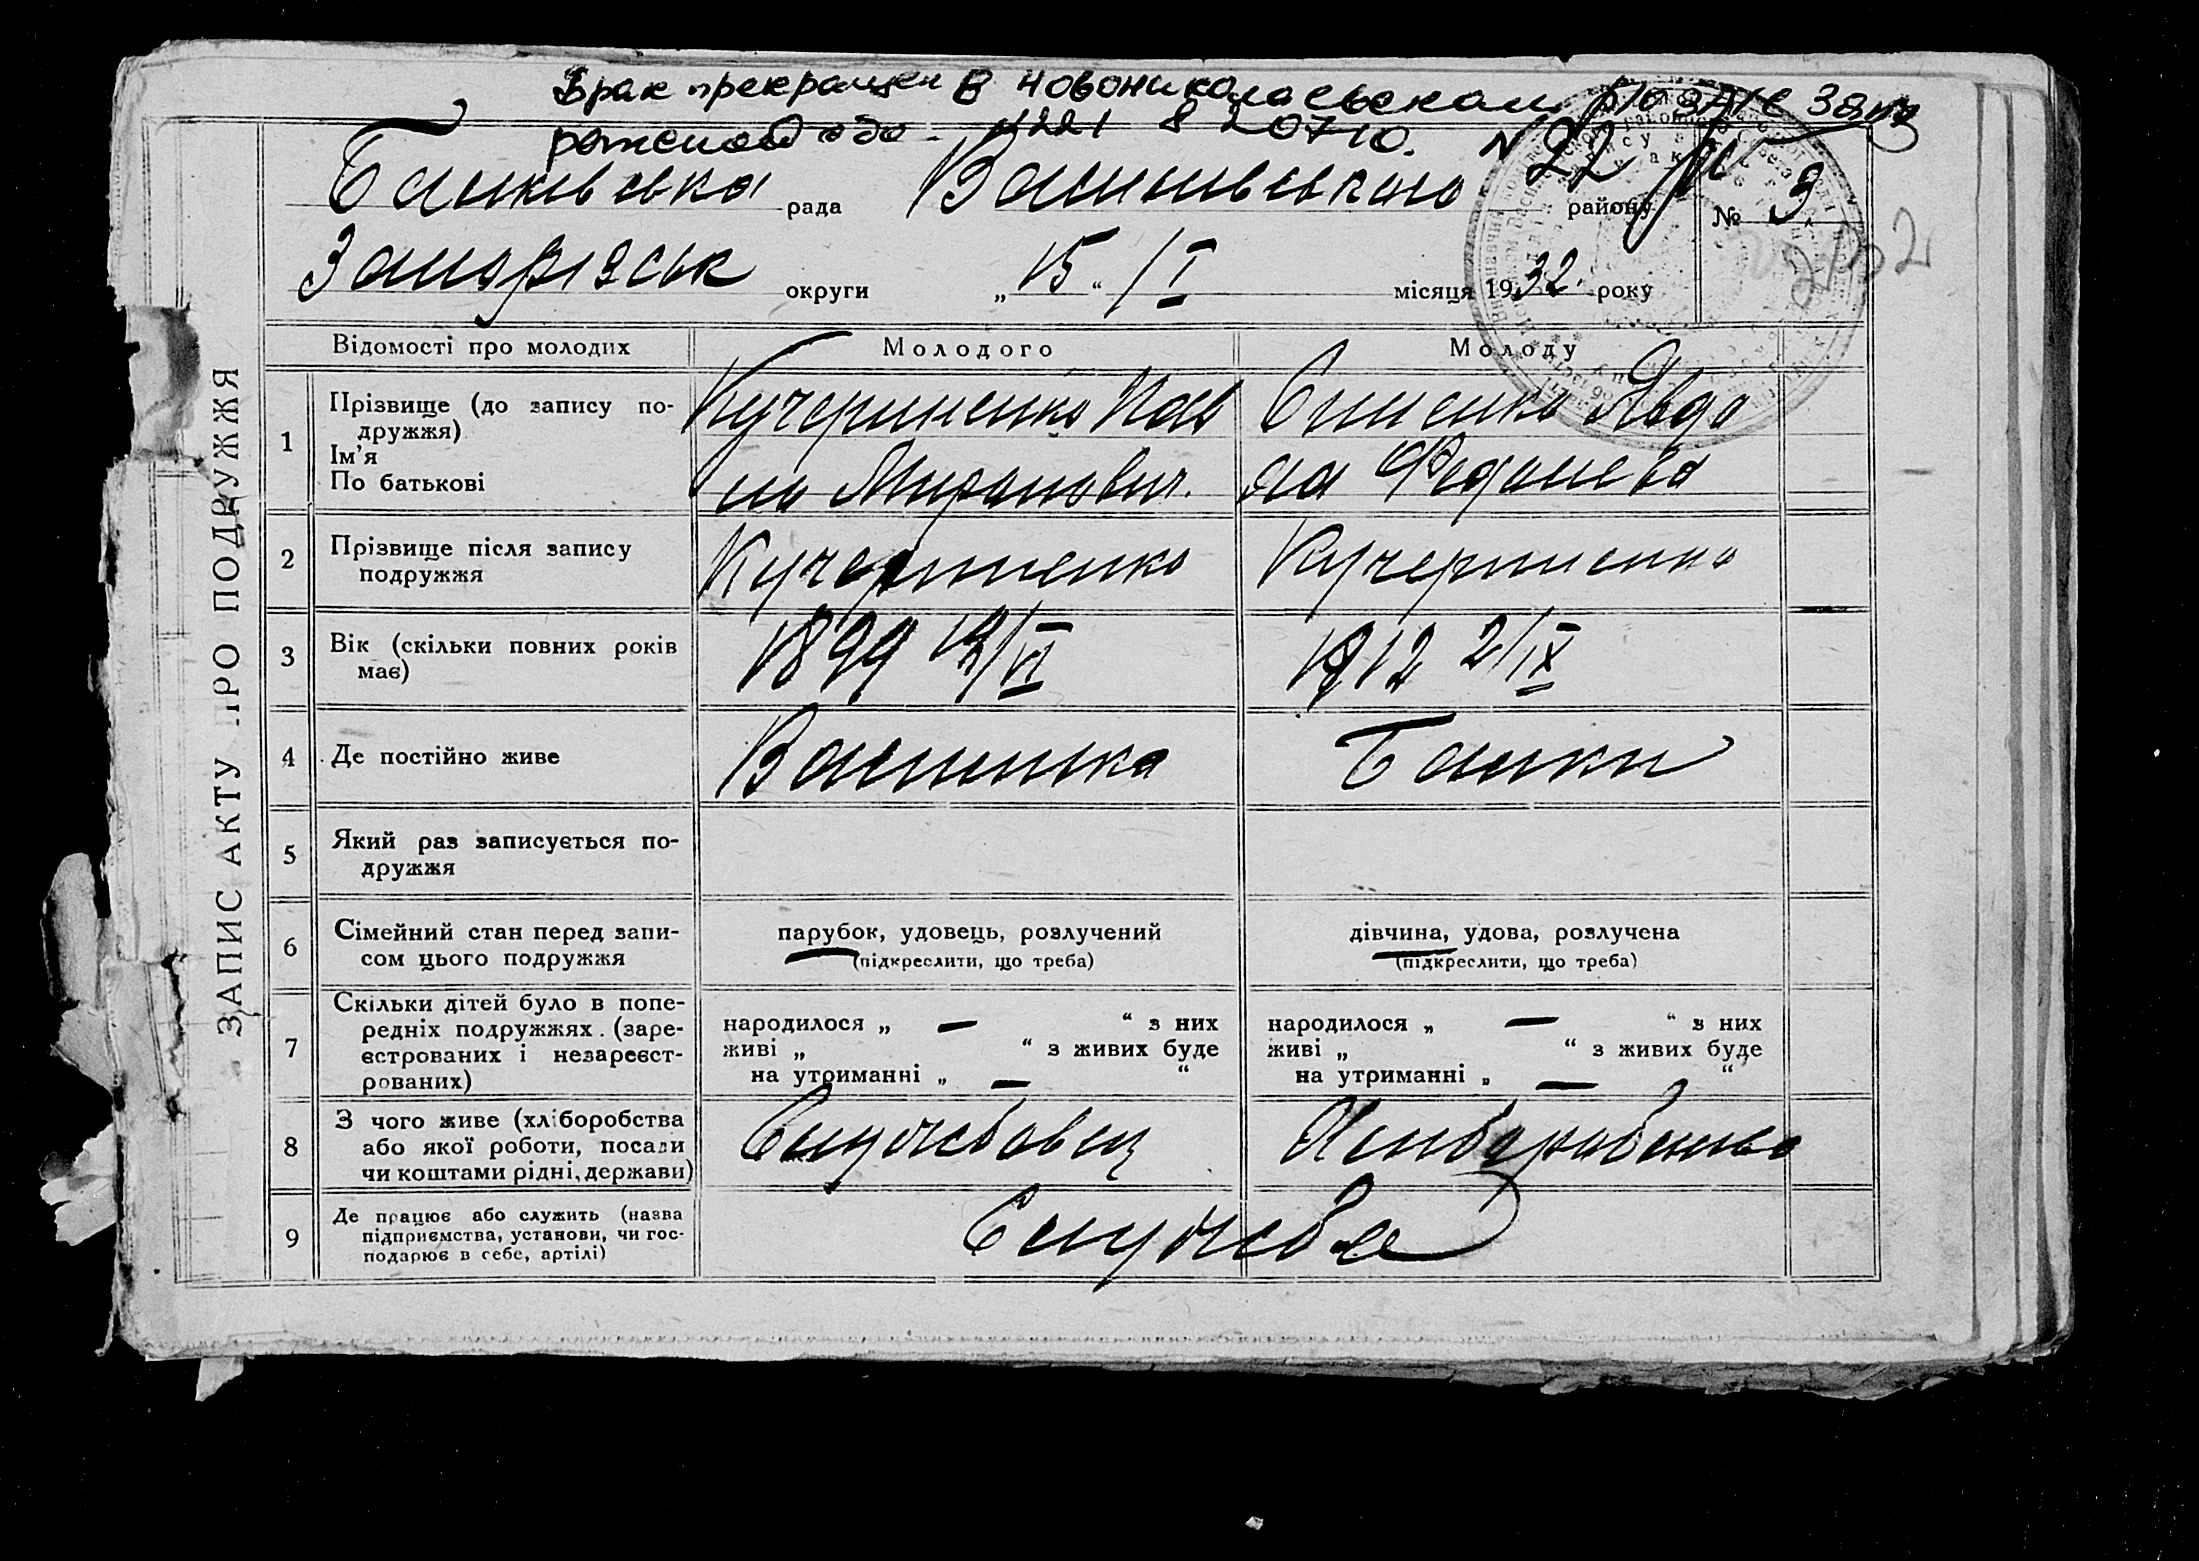 Брак прекращен в Новониколаевском р/о ЗАГС Запо
рожской обл.
Балківська рада Василівського району № 3
Запорізськ округи „15“ /I місяця 1932 року
ЗАПИС АКТУ ПРО ПОДРУЖЖЯ
Відомості про молодих Молодого Молоду
1 Прізвище (до запису по-
дружжя)
Ім’я
По батькові
Кучериненко Пав
ло Миронович.
Явдо
ха Федотова
2 Прізвище після запису
подружжя
Кучериненко Кучериненко
3 Вік (скільки повних років
має)
1899 /VI 1912 2/IX
4 Де постійно живе Василівка Балки
5 Який раз записується по-
дружжя
6 Сімейний стан перед запи-
сом цього подружжя
парубок, удовець, розлучений
(підкреслити, що треба)
дівчина, удова, розлучена
(підкреслити, що треба)
7 Скільки дітей було в попе-
редніх подружжях (заре-
єстрованих і незареєст-
рованих)
народилося „ — “ з них
живі „ “ з живих буде
на утриманні „ — “
народилося „ — “ з них
живі „ “ з живих буде
на утриманні „ — “
8 З чого живе (хліборобства
або якої роботи, посади
чи коштами рідні, держави)
Службовец Хліборобство
9 Де працює або служить (назва
підприємства, установи, чи гос-
подарює в себе, артілі)
Служба